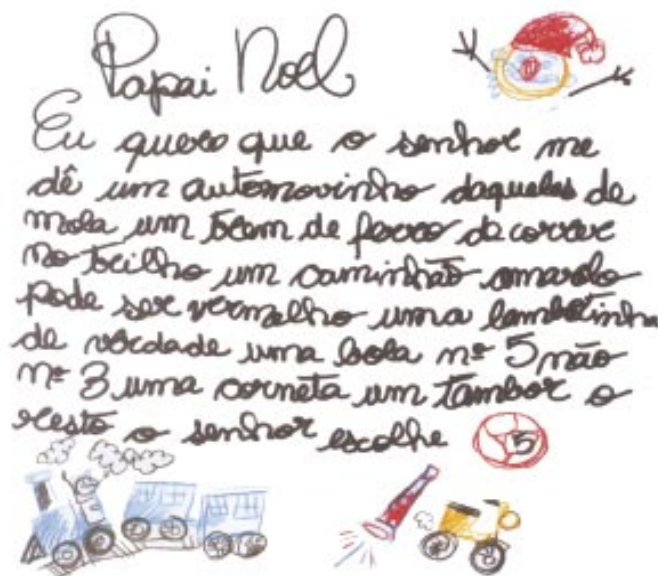 Papai Noel
Eu quero que o senhor me
dê um automovinho daqueles de
mola um trem de ferro de correr
no trilho um caminhão amarelo
pode ser vermelho uma
de verdade uma bola nº 5 não
nº 3 uma corneta um tambor o
resto o senhor escolhe 5